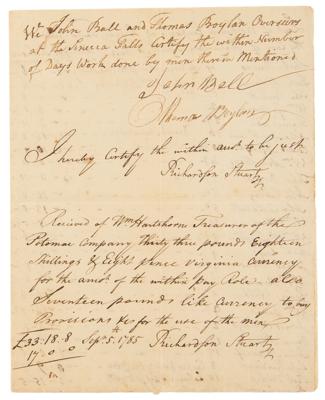 We John Ball and Thomas Boylan Overseers
at the Seneca Falls Certify the within Number
of Days Work done by men therein Mentioned
John Ball
Thomas Boylan
I hereby Certify the within amt. to be just
Richardson Stuart
Recieved of Wm Hartshorne Treasurer of the
Potomac Company thirty three pounds Eighteen
Shillings & Eight pence Virginia Currency
for the amot. of the within Pay Role also
Seventeen pounds like Currency to buy
Provisions &c for the use of the men
£33.18.8 Sept. 5th 1785 Richardson Stuart
17.0.0